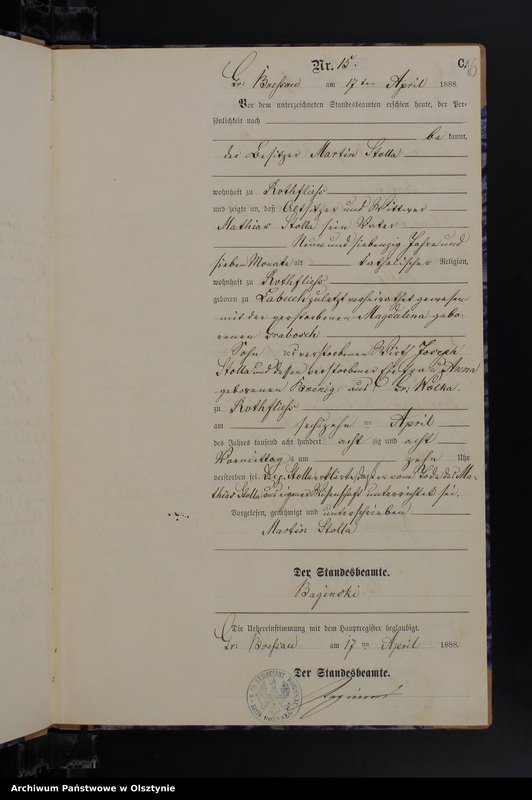 C.
16
Nr. 15.
Gr. Boessau am 17 ten April 1888.
Vor dem unterzeichneten Standesbeamten erschien heute, der Per-
sönlichkeit nach
be kannt,
der Besitzer Martin Stolla
wohnhaft zu Rothfliess
und zeigte an, daß Altsitzer und Wittwer
Mathias Stolla sein Vater
Neun und siebenzig Jahre und
sieben Monate alt katholischer Religion,
wohnhaft zu Rothfliess
geboren zu Labuch zuletzt verheirathet gewesen
mit der verstorbenen Magdalena gebo-
renen Grabosch
Sohn des verstorbenen Wirth Joseph
Stolla und dessen verstorbener Ehefrau Anna
geborenen aus Gr. Wolka.
zu Rothfliess
am sechszehn ten April
des Jahres tausend acht hundert acht zig und acht
Vormittags um zehn Uhr
verstorben sei. Der p. Stolla erklärte, daß er vom Tode des Ma-
thias Stolla aus eigener Wissenschaft unterrichtet sei.
Vorgelesen, genehmigt und unterschrieben
Martin Stolla
Der Standesbeamte.
Baginski
Die Uebereinstimmung mit dem Hauptregister beglaubigt.
Gr. Boessau am 17 ten April 1888.
Der Standesbeamte.
Baginski
Archiwum Państwowe w Olsztynie